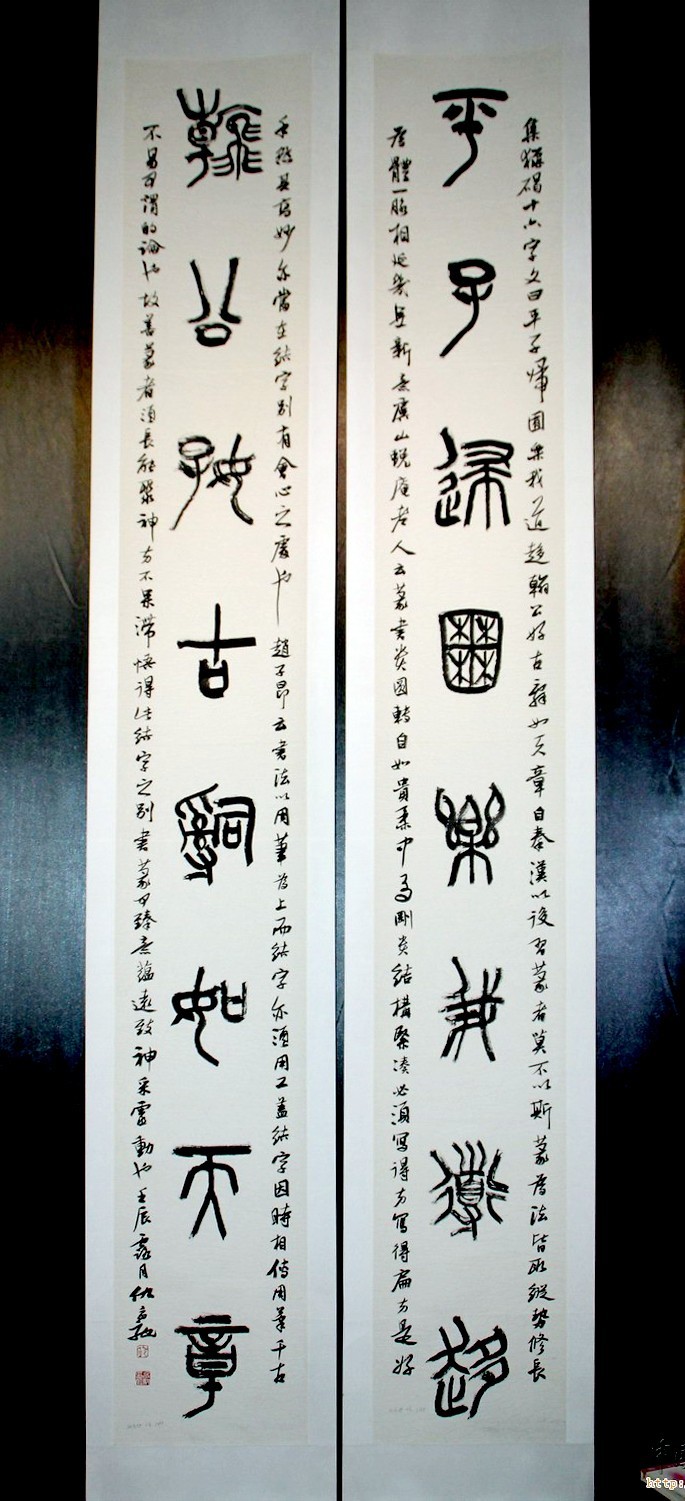 集猎碣十六字文曰平子歸囿樂我道趍翰公好古辭如天章自秦漢以後習篆者莫不以斯篆為法皆取縱勢修長
平子歸囿樂我道趍
為體一脈相延幾無新意廣山蛻庵老人云篆書貴圓轉自如貴柔中為剛貴結構緊湊必須寫得方寫得扁方是好
手然其高妙亦當在結字別有會心之處也趙子昂云書法以用筆為上而結字亦須用工蓋結字因時相傳用筆千古
翰公好古辭如天章
不易可謂的論也故善篆者須長能聚神方不呆滯悟得此結字之別書篆可臻意蘊遠致神采靈動也壬辰露月仇高馳
http: